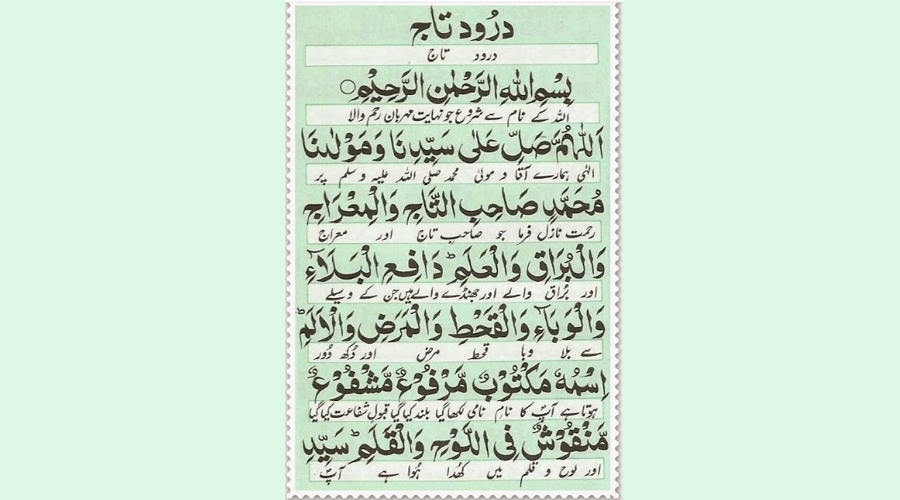 درُود تاج
درود تاج
بِسْمِ اللهِ الرَّحْمٰنِ الرَّحِيْمِ ○
اللہ کے نام سے شروع جو نہایت مہربان رحم والا
اَللّٰهُمَّ صَلِّ عَلٰى سَيِّدِنَا وَمَوْلٰىنَا
الٰہی ہمارے آقا و مولیٰ محمد صلی اللہ علیہ وسلم پر
مُحَمَّدٍ صَاحِبِ التَّاجِ وَالْمِعْرَاجِ
رحمت نازل فرما جو صاحب تاج اور معراج
وَالْبُرَاقِ وَالْعَلَمِؕ دَافِعِ الْبَلَآءِ
اور بُراق والے اور جھنڈے والے ہیں جن کے وسیلے
وَالْوَبَآءِ وَالْقَحْطِ وَالْمَرَضِ وَالْاَلَمِؕ
سے بلا وبا قحط مرض اور دُکھ دُور
اِسْمُهٗ مَكْتُوْبٌ مَّرْفُوْعٌ مَّشْفُوْعٌ
ہوتا ہے آپؐ کا نام نامی لکھا گیا بلند کیا گیا قبول شفاعت کیا گیا
مَّنْقُوْشٌ فِى اللَّوْحِ وَالْقَلَمِؕ سَيِّدِ
اور لوح و قلم میں کھُدا ہُوا ہے آپؐ